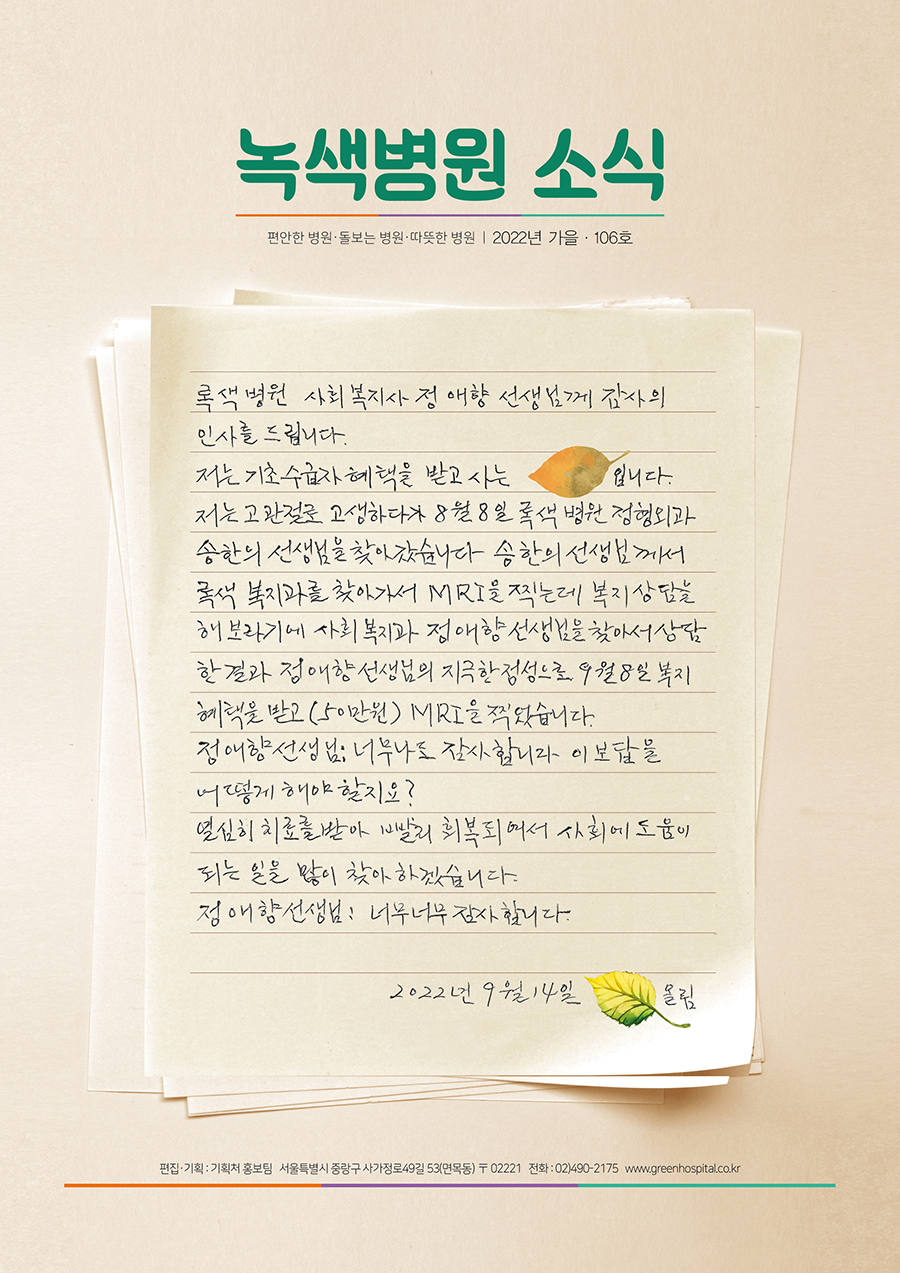 녹색병원 소식
편안한 병원·돌보는 병원·따뜻한 병원 | 2022년 가을 · 106호
록색병원 사회복지사 정애향 선생님께 감사의
인사를 드립니다.
저는 기초수급자 혜택을 받고 사는 입니다.
저는 고관절로 고생하다가 8월 8일 록색병원 정형외과
송한의 선생님을 찾아갔습니다 송한의 선생님께서
록색 복지과를 찾아가서 MRI을 찍는데 복지상담을
해보라기에 사회복지과 정애향선생님을 찾아서 상담
한결과 정애향선생님의 지극한정성으로 9월8일 복지
혜택을 받고 (50만원) MRI을 찍었습니다.
정애향선생님; 너무나도 감사합니다 이 보답을
어떻게 해야 할지요?
열심히 치료를받아 빨리 회복되여서 사회에 도움이
되는 일을 많이 찾아 하겠습니다.
정애향선생님: 너무너무 감사합니다.
2022년 9월 14일 올림
편집·기획 : 기획처 홍보팀 서울특별시 중랑구 사가정로49길 53(면목동) 〒 02221 전화 : 02)490-2175 www.greenhospital.co.kr